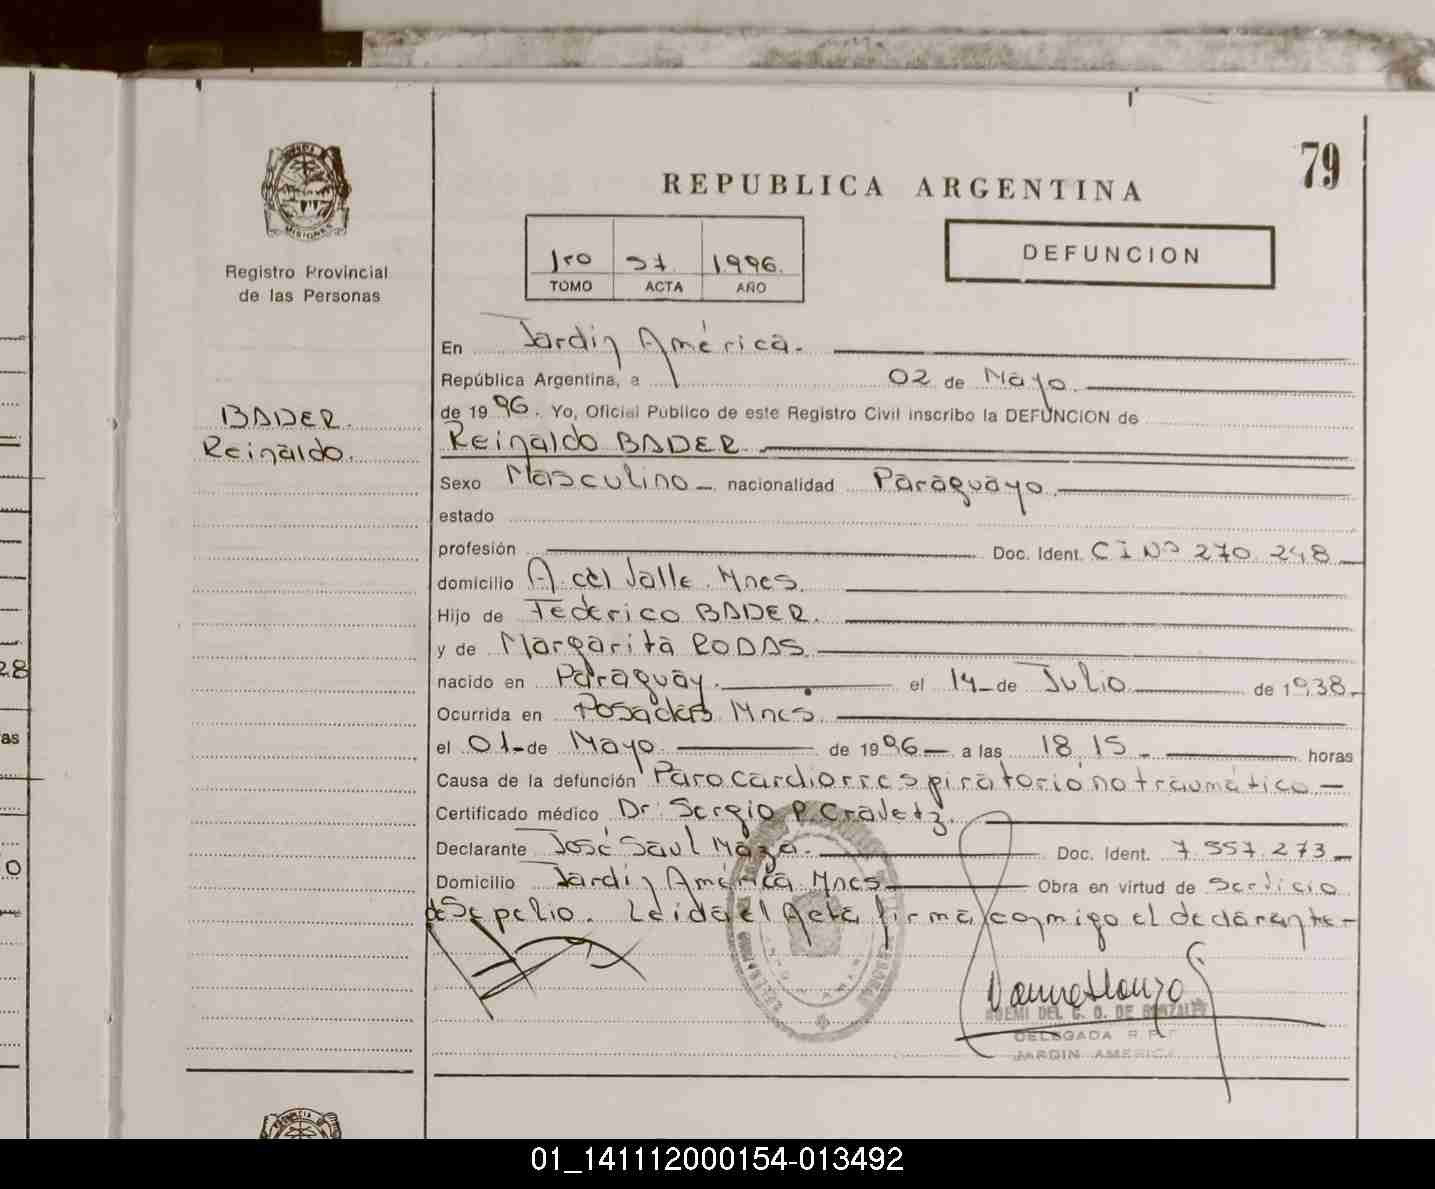 79
REPUBLICA ARGENTINA
MISIONES
Registro Provincial
de las Personas
1ro 1996
TOMO ACTA AÑO
DEFUNCION
En Jardin América.
República Argentina, a 02 de Mayo
BADER.
Reinaldo.
de 1996. Yo, Oficial Público de este Registro Civil inscribo la DEFUNCION de
Reinaldo BADER
Sexo Masculino nacionalidad Paraguayo
estado
profesión Doc. Ident. CI Nº 270.248
domicilio A. del Valle. Mnes.
Hijo de Federico BADER.
y de Margarita RODAS
nacido en Paraguay. el 14 de Julio de 1938
Ocurrida en Posadas Mnes.
el 01 de Mayo de 1996 a las 18.15 horas
Causa de la defunción Paro cardiorrespiratorio no traumático
Certificado médico Dr. Sergio P. Cravetz.
Declarante José Saul Maza. Doc. Ident. 7.557.273
Domicilio Jardin América Mnes Obra en virtud de Servicio
de Sepelio. Leida el Acta firma conmigo el declarante
DELEGADA R.P.
JARDIN AMERICA
28
as
0
01_141112000154-013492